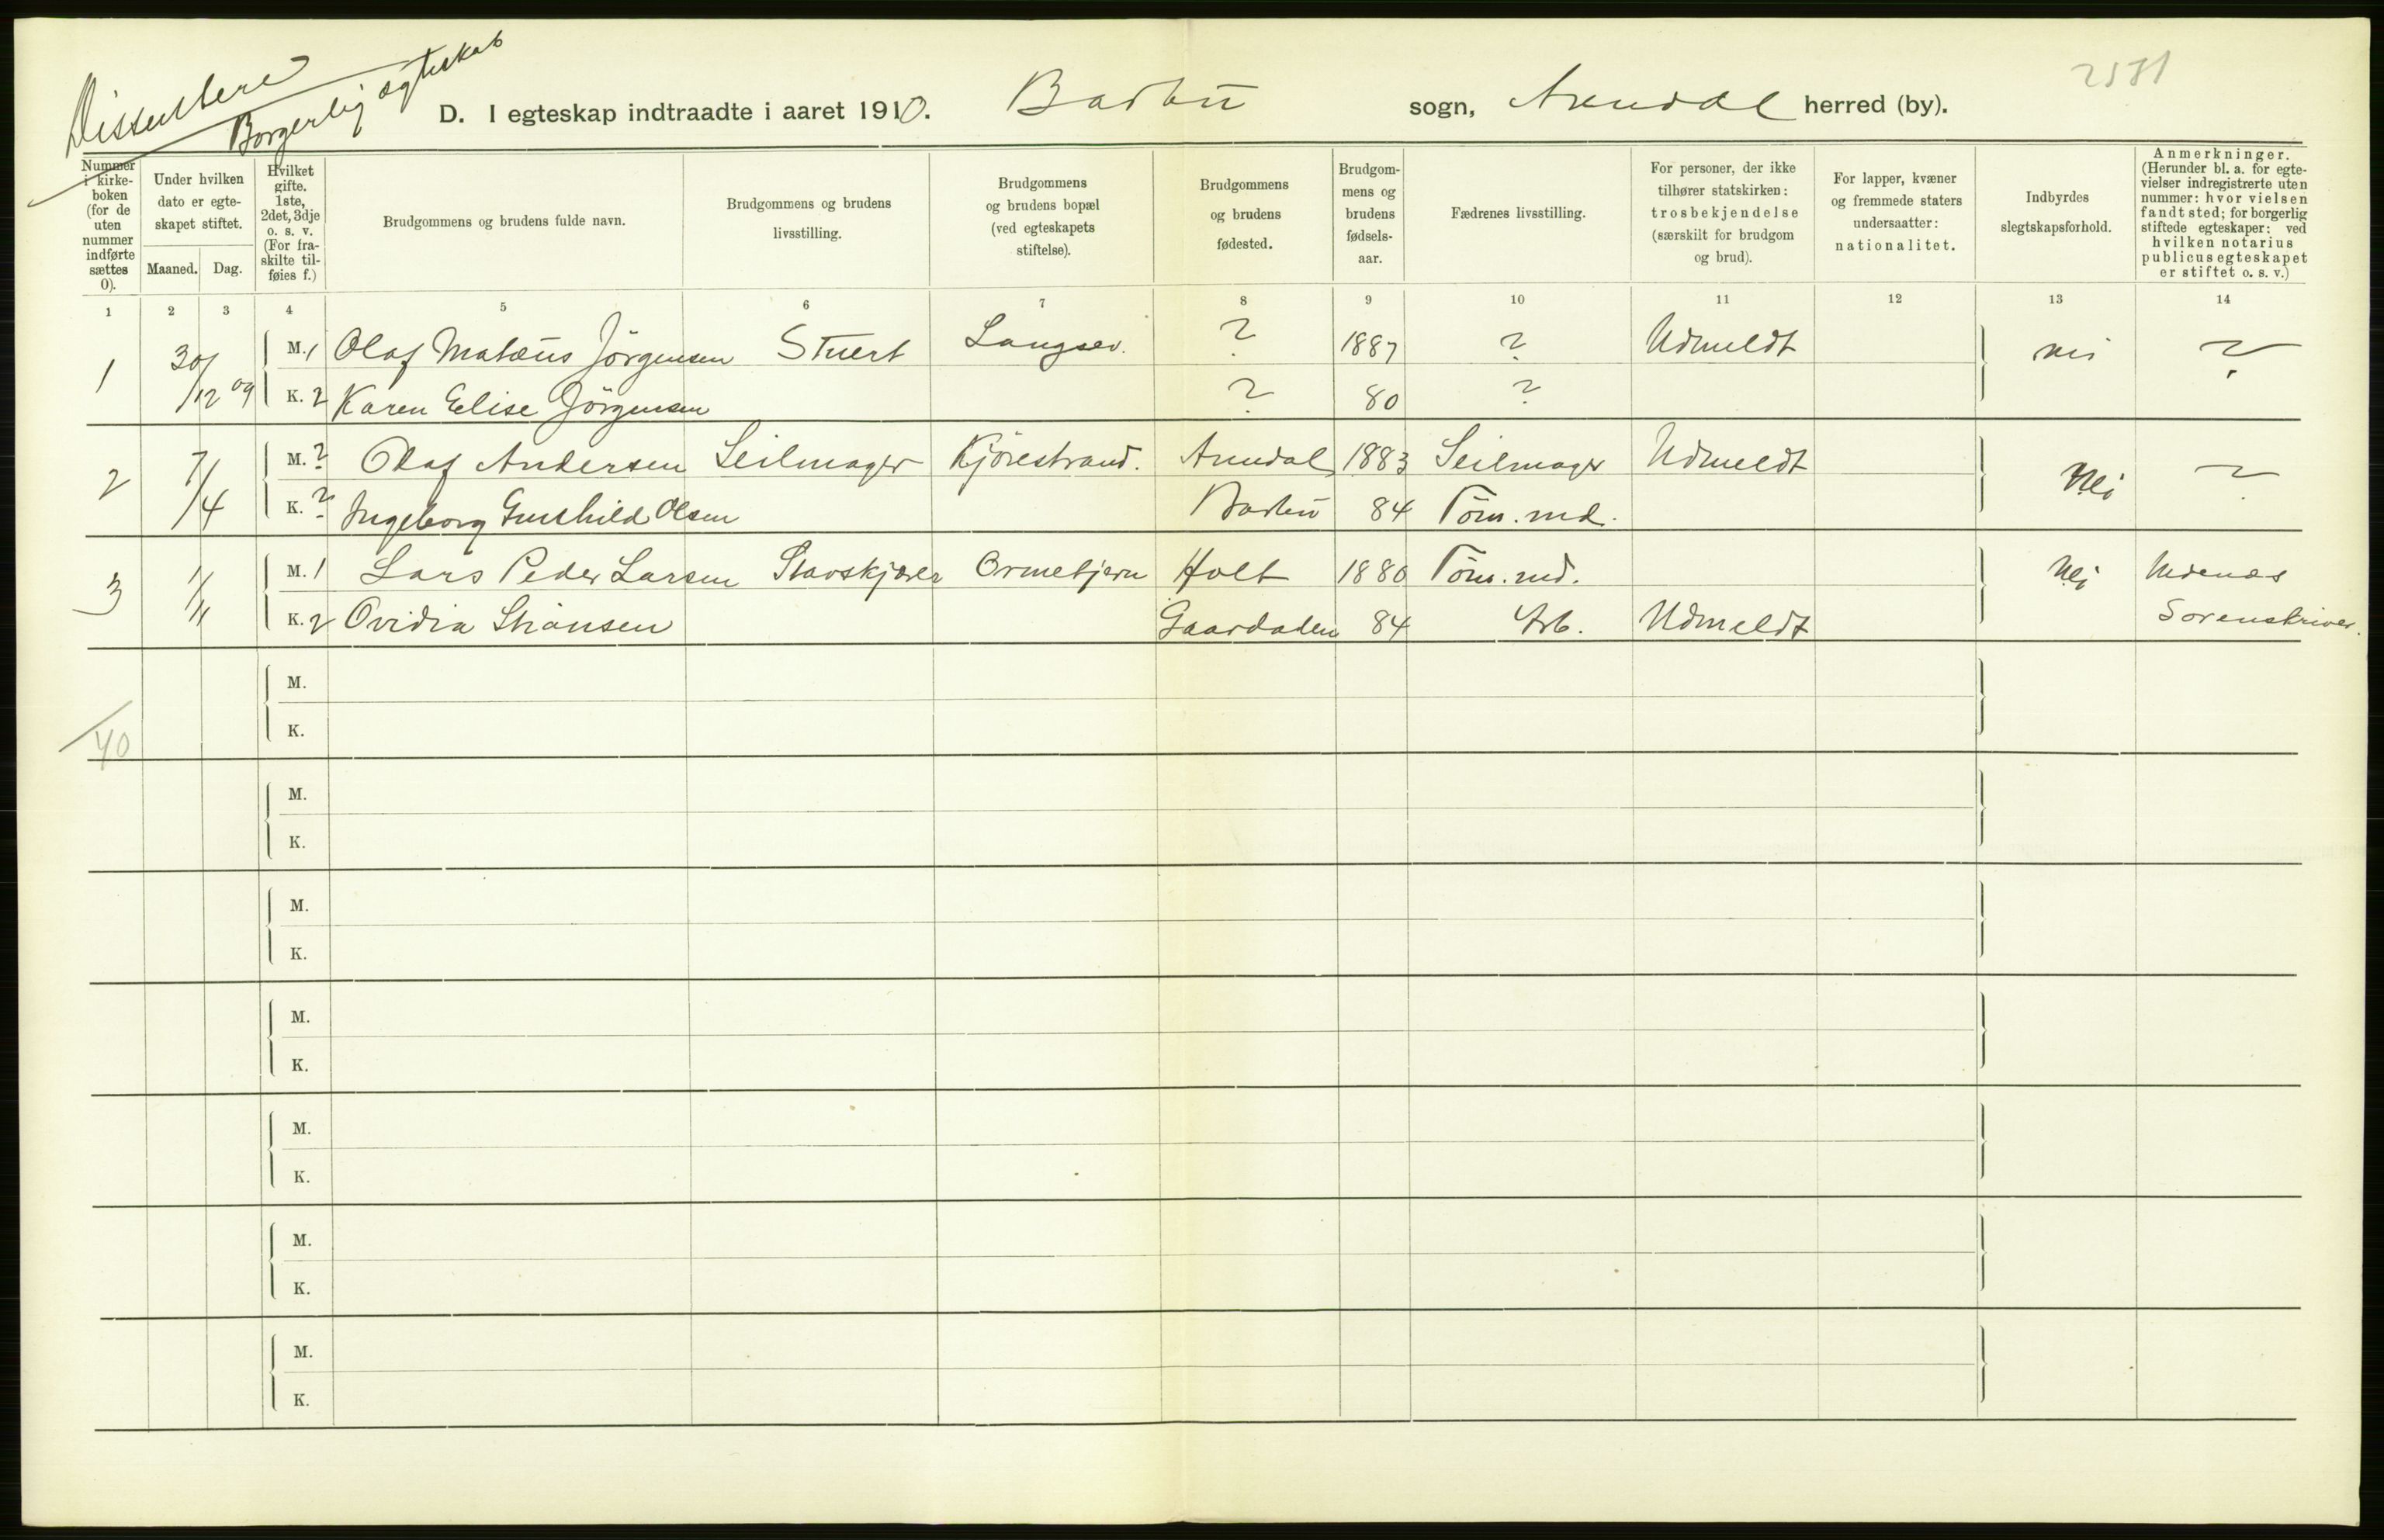 Dissentere
Borgerlig egteskab
2571
D. I egteskap indtraadte i aaret 1910. Barbu sogn, Arendal herred (by).
Nummer i kirke-boken (for de uten nummer indførte sættes 0).
Under hvilken dato er egte-skapet stiftet.
Maaned. Dag.
Hvilket gifte. 1ste, 2det, 3dje o. s. v. (For fra-skilte til-føies f.)
Brudgommens og brudens fulde navn.
Brudgommens og brudens livsstilling.
Brudgommens og brudens bopæl (ved egteskapets stiftelse).
Brudgommens og brudens fødested.
Brudgom-mens og brudens fødsels-aar.
Fædrenes livsstilling.
For personer, der ikke tilhører statskirken: trosbekjendelse (særskilt for brudgom og brud).
For lapper, kvæner og fremmede staters undersaatter: nationalitet.
Indbyrdes slegtskapsforhold.
Anmerkninger. (Herunder bl. a. for egte-vielser indregistrerte uten nummer: hvor vielsen fandt sted; for borgerlig stiftede egteskaper: ved hvilken notarius publicus egteskapet er stiftet o. s. v.)
1 2 3 4 5 6 7 8 9 10 11 12 13 14
1 30/12 09 M. 1 Olaf Matæus Jörgensen Stuert Langsev. ? 1887 ? Udmeldt nei ?
K. 2 Karen Elise Jörgensen ? 80 ?
2 7/4 M. ? Olaf Andersen Seilmager Kjörestrand. Arendal 1883 Seilmager Udmeldt Nei ?
K. ? Ingeborg Gunhild Olsen Barbu 84 Töm. md.
3 1/11 M. 1 Lars Peder Larsen Ormetjern Holt 1880 Töm. md. Nei Nedenæs
K. 2 Ovidia 84 Arb. Udmeldt Sorenskriver.
M.
K.
40
M.
K.
M.
K.
M.
K.
M.
K.
M.
K.
M.
K.